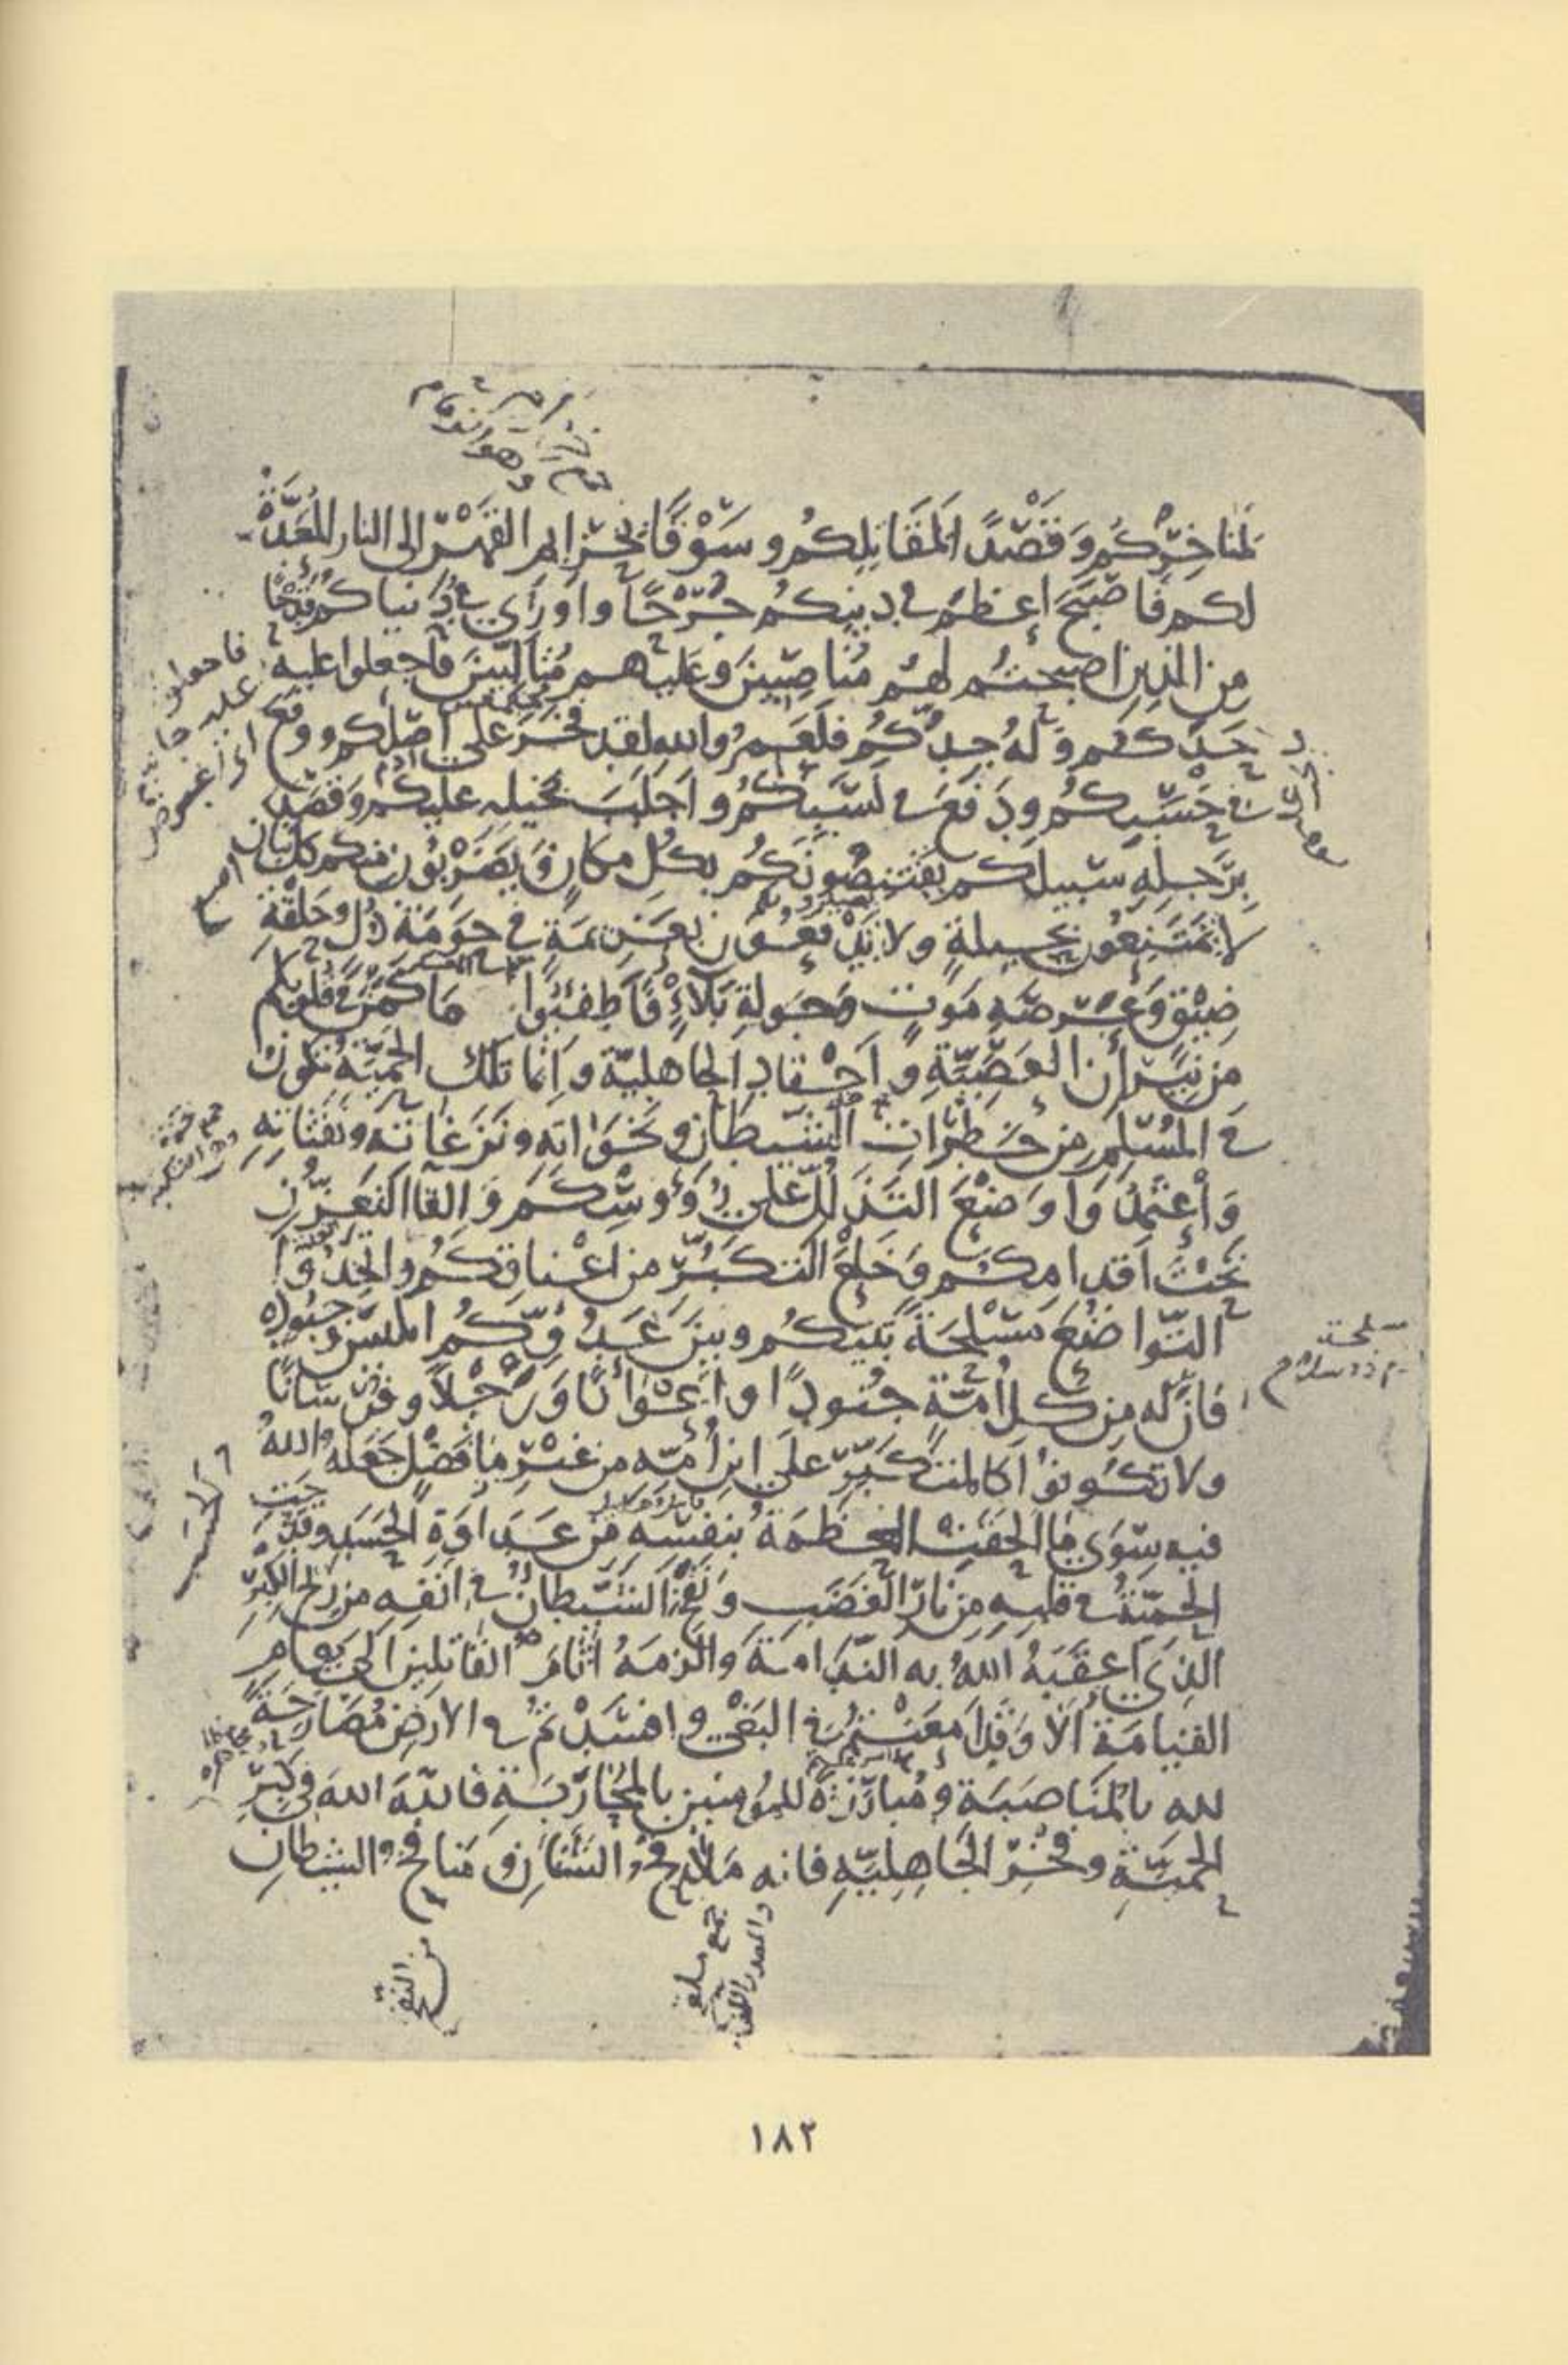 لمناخركم وقصدا لمقاتلكم وسوقا بخزايم القهر الى النار المعدة
لكم فاصبح اعظم في دينكم جرحا واورى في دنياكم قدحا
من الذين اصبحتم لهم مناصبين وعليهم متالبين فاجعلوا عليه
حدكم وله جدكم فلعمر والله لقد فخر على اصلكم ووقع
في حسبكم ودفع في نسبكم واجلب بخيله عليكم وقصد
برجله سبيلكم يقتنصونكم بكل مكان ويضربون منكم كل بنان
لا تمتنعون بحيلة ولا تدفعون بعزيمة في حومة ذل وحلقة
ضيق وعرصة موت وجولة بلاء فاطفئوا ما كمن في قلوبكم
من نيران العصبية واحقاد الجاهلية وانما تلك الحمية تكون
في المسلم من خطرات الشيطان ونخواته ونزغاته ونفثاته
واعتمدوا وضع التذلل على رؤوسكم والقاء التعزز
تحت اقدامكم وخلع التكبر من اعناقكم واتخذوا
التواضع مسلحة بينكم وبين عدوكم ابليس وجنوده
فان له من كل امة جنودا واعوانا ورجلا وفرسانا
ولا تكونوا كالمتكبر على ابن امه من غير ما فضل جعله الله
فيه سوى ما الحقت العظمة بنفسه من عداوة الحسد وقدحت
الحمية في قلبه من نار الغضب ونفخ الشيطان في انفه من ريح الكبر
الذي اعقبه الله به الندامة والزمه آثام القاتلين الى يوم
القيامة الا وقد امعنتم في البغي وافسدتم في الارض مصارحة
لله بالمناصبة ومبارزة للمؤمنين بالمحاربة فالله الله في كبر
الحمية وفخر الجاهلية فانه ملاقح الشنان ومنافخ الشيطان
١٨٢